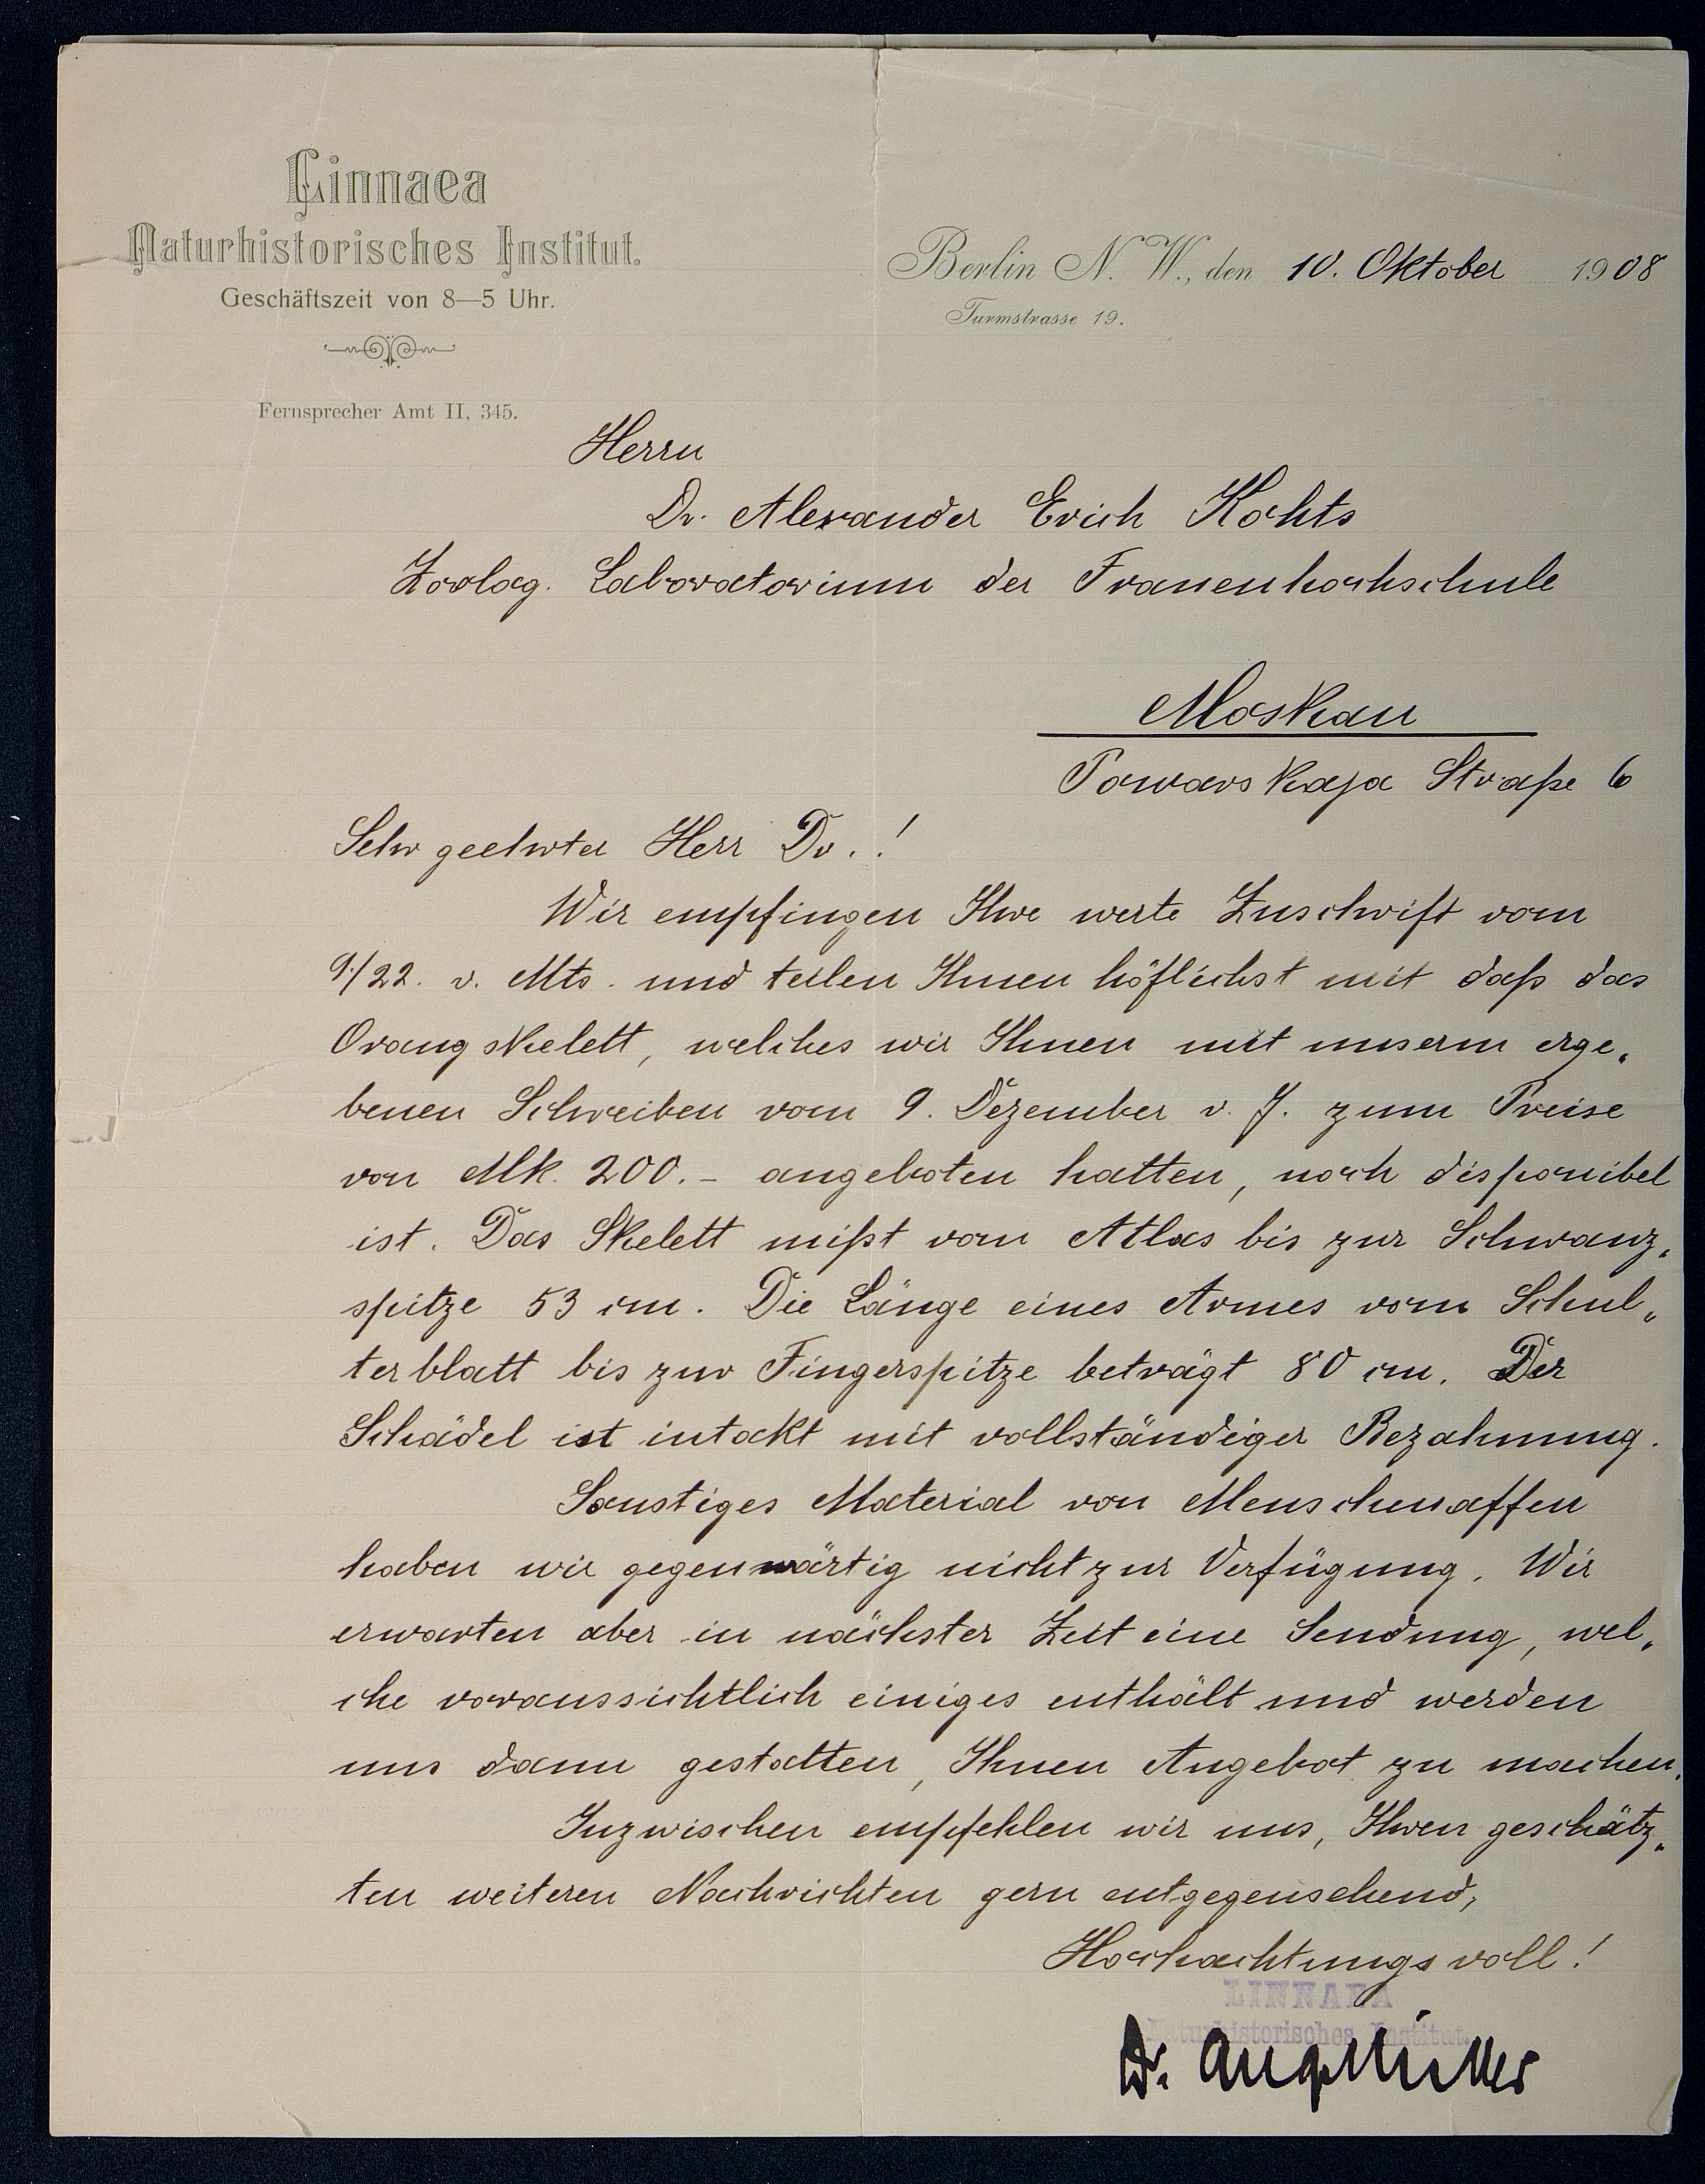 Linnaea
Naturhistorisches Institut.
Geschäftszeit von 8—5 Uhr.
Fernsprecher Amt II, 345.
Berlin N. W., den 10. Oktober 1908
Turmstrasse 19.
Herrn
Dr. Alexander Erich Kohts
Zoolog. Laboratorium der Frauenhochschule
Moskau
Powarskaja Straße 6
Sehr geehrter Herr Dr.!
Wir empfingen Ihre werte Zuschrift vom
9./22. v. Mts. und teilen Ihnen höflichst mit daß das
Orangskelett, welches wir Ihnen mit unserm erge„
benen Schreiben vom 9. Dezember v. J. zum Preise
von Mk. 200.- angeboten hatten, noch disponibel
ist. Das Skelett mißt vom Atlas bis zur Schwanz„
spitze 53 cm. Die Länge eines Armes vom Schul„
terblatt bis zur Fingerspitze beträgt 80 cm. Der
Schädel ist intakt mit vollständiger Bezahnung.
Sonstiges Material von Menschenaffen
haben wir gegenwärtig nicht zur Verfügung. Wir
erwarten aber in nächster Zeit eine Sendung, wel„
che voraussichtlich einiges enthält und werden
uns dann gestatten, Ihnen Angebot zu machen.
Inzwischen empfehlen wir uns, Ihren geschätz„
ten weiteren Nachrichten gern entgegensehend,
Hochachtungsvoll!
LINNAEA
Naturhistorisches Institut.
Dr. Aug. Müller